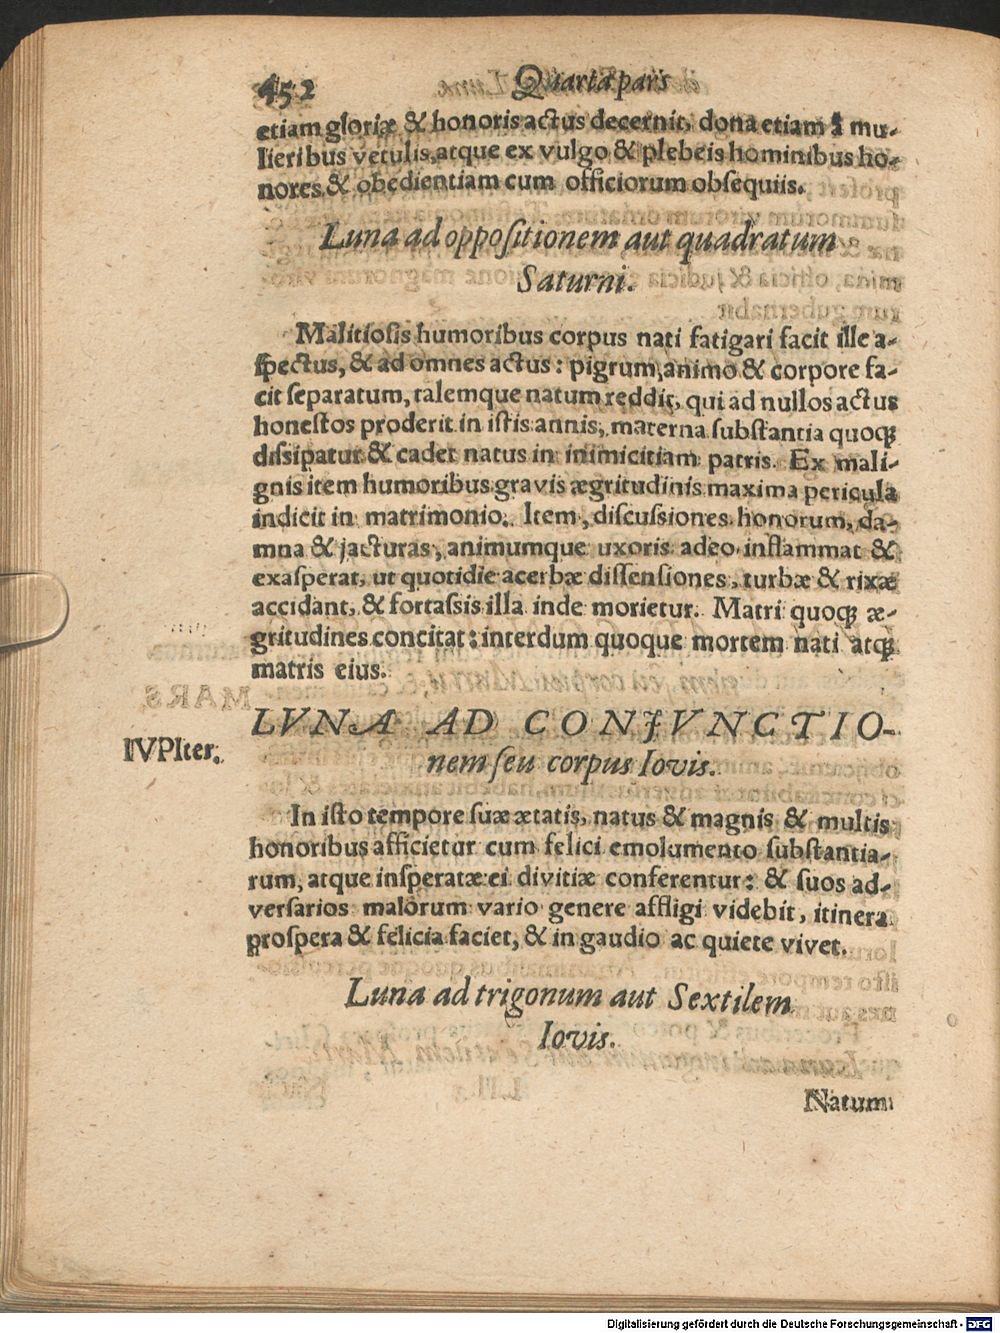 452 Quarta pars
etiam gloriæ & honoris actus decernit, dona etiam à mu-
lieribus vetulis, atque ex vulgo & plebeis hominibus ho-
nores & obedientiam cum officiorum obsequiis.
Luna ad oppositionem aut quadratum
Saturni.
Malitiosis humoribus corpus nati fatigari facit ille a-
spectus, & ad omnes actus: pigrum, animo & corpore fa-
cit separatum, talemque natum reddit, qui ad nullos actus
honestos proderit in istis annis, materna substantia quoq;
dissipatur & cadet natus in inimicitiam patris. Ex mali-
gnis item humoribus gravis ægritudinis maxima pericula
indicit in matrimonio. Item, discussiones honorum, da-
mna & jacturas, animumque uxoris adeo inflammat &
exasperat, ut quotidie acerbæ dissensiones, turbæ & rixæ
accidant, & fortassis illa inde morietur. Matri quoq; æ-
gritudines concitat: interdum quoque mortem nati atq;
matris eius.
LVNA AD CONJVNCTIO-
IVPIter. nem seu corpus Iovis.
In isto tempore suæ ætatis, natus & magnis & multis
honoribus afficietur cum felici emolumento substantia-
rum, atque insperatæ ei divitiæ conferentur: & suos ad-
versarios malorum vario genere affligi videbit, itinera
prospera & felicia faciet, & in gaudio ac quiete vivet.
Luna ad trigonum aut Sextilem
Iovis.
Natum
Digitalisierung gefördert durch die Deutsche Forschungsgemeinschaft - DFG